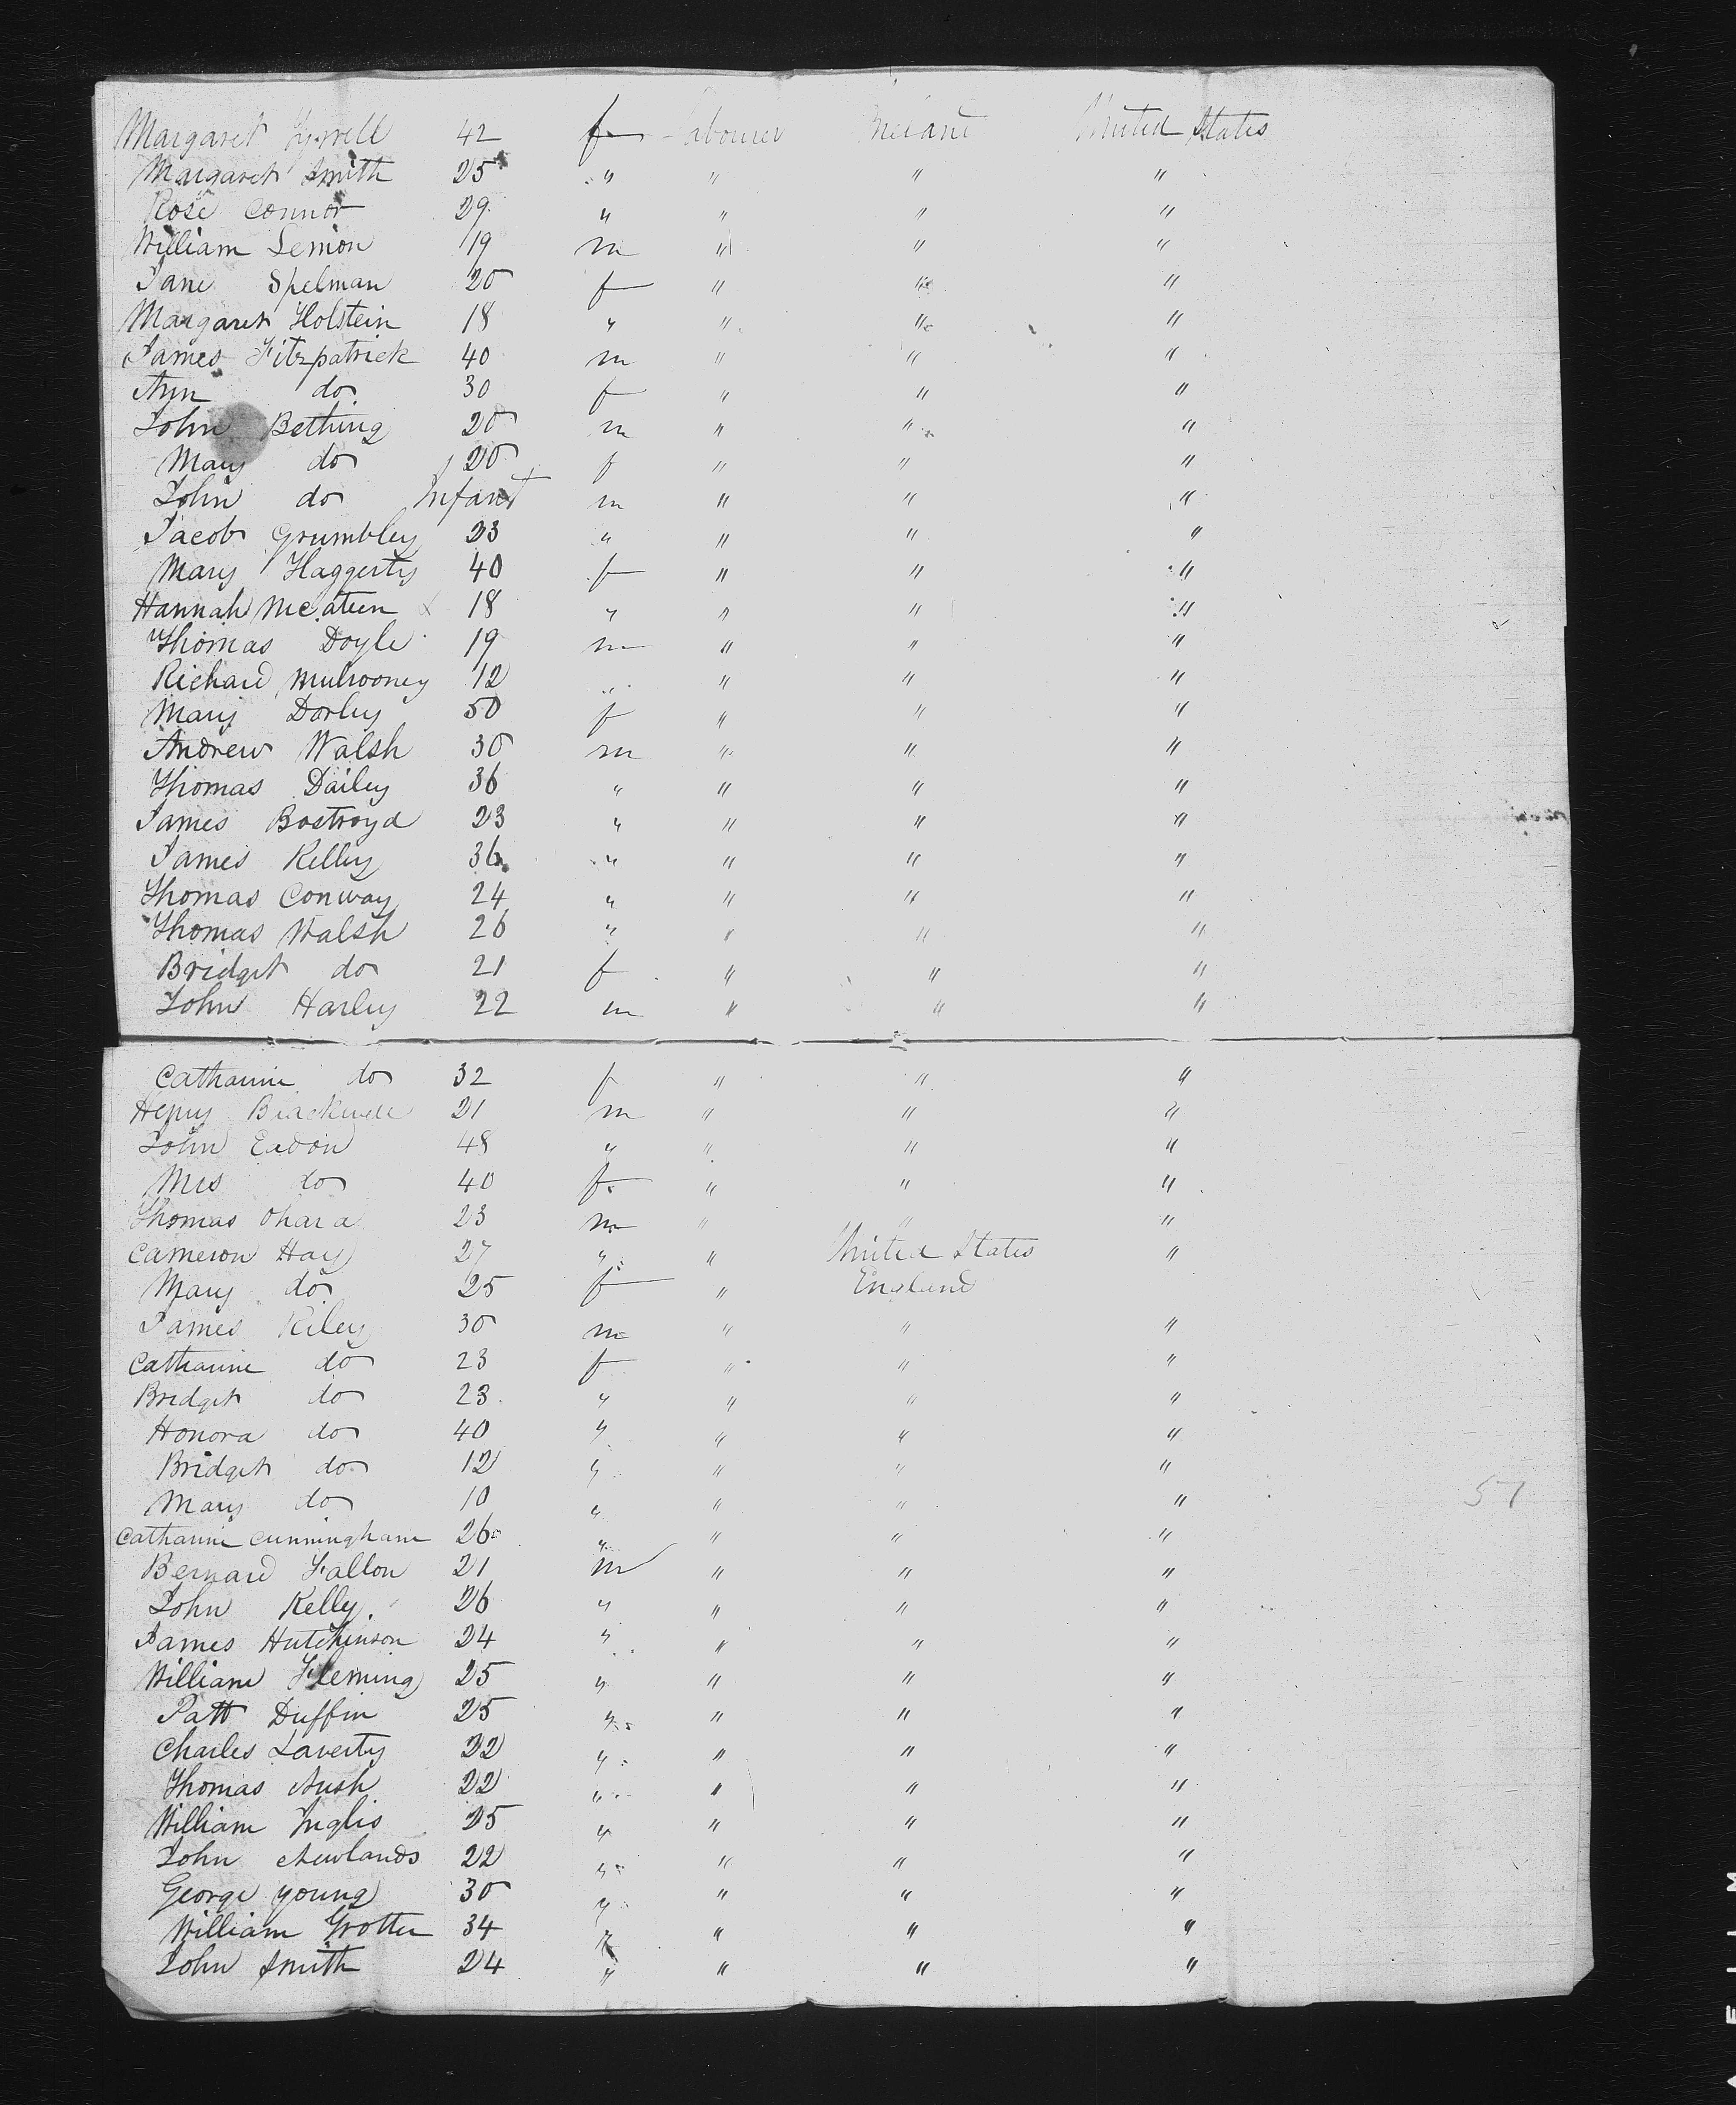 Margaret Tyrrell 42 f Labourer Ireland United States
Margaret Smith 25 " " " "
Rose Connor 29 " " " "
William Lemon 19 m " " "
Jane Spelman 20 f " " "
Margaret Holstein 18 " " " "
James Fitzpatrick 40 m " " "
Ann do 30 f " " "
John Bethung 20 m " " "
Mary do 20 f " " "
John do Infant m " " "
Jacob Grumbley 23 " " " "
Mary Haggerty 40 f " " "
Hannah McAteen 18 " " " "
Thomas Doyle 19 m " " "
Richard Mulrooney 12 " " " "
Mary Dorley 50 f " " "
Andrew Walsh 30 m " " "
Thomas Dailey 36 " " " "
James Bostroyd 23 " " " "
James Kelley 36 " " " "
Thomas Conway 24 " " " "
Thomas Walsh 26 " " " "
Bridget do 21 f " " "
John Harley 22 m " " "
Catharine do 32 f " " "
Henry Blackwell 21 m " " "
John Eadon 48 " " " "
Mrs do 40 f " " "
Thomas Ohara 23 m " " "
Cameron Hay 27 " " United States "
Mary do 25 f " England
James Riley 30 m " " "
Catharine do 23 f " " "
Bridget do 23 " " " "
Honora do 40 " " " "
Bridget do 12 " " " "
Mary do 10 " " " "
57
Catharine Cunningham 26 " " " "
Bernard Fallon 21 m " " "
John Kelly 26 " " " "
James Hutchinson 24 " " " "
William Fleming 25 " " " "
Patt Duffin 25 " " " "
Charles Laverty 22 " " " "
Thomas Nush 22 " " " "
William Inglis 25 " " " "
John Newlands 22 " " " "
George Young 30 " " " "
William Grotter 34 " " " "
John Smith 24 " " " "